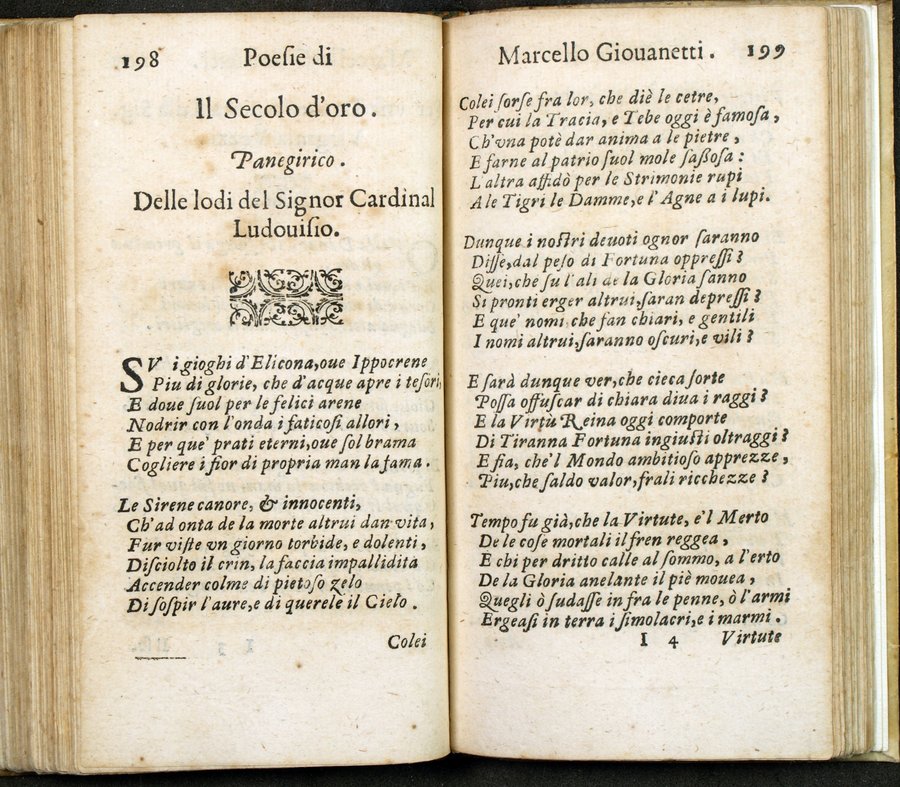 198 Poesie di
Il Secolo d'oro.
Panegirico.
Delle lodi del Signor Cardinal
Ludouisio.
SV i gioghi d'Elicona, oue Ippocrene
Piu di glorie, che d'acque apre i tesori,
E doue suol per le felici arene
Nodrir con l'onda i faticosi allori,
E per que' prati eterni, oue sol brama
Cogliere i fior di propria man la fama.
Le Sirene canore, & innocenti,
Ch'ad onta de la morte altrui dan vita,
Fur viste vn giorno torbide, e dolenti,
Disciolto il crin, la faccia impallidita
Accender colme di pietoso zelo
Di sospir l'aure, e di querele il Cielo.
Colei
Marcello Giouanetti. 199
Colei sorse fra lor, che diè le cetre,
Per cui la Tracia, e Tebe oggi è famosa,
Ch'vna potè dar anima a le pietre,
E farne al patrio suol mole sassosa:
L'altra affidò per le Strimonie rupi
A le Tigri le Damme, e l'Agne a i lupi.
Dunque i nostri deuoti ognor saranno
Disse, dal peso di Fortuna oppressi?
Quei, che su l'ali de la Gloria sanno
Si pronti erger altrui, saran depressi?
E que' nomi che fan chiari, e gentili
I nomi altrui, saranno oscuri, e vili?
E sarà dunque ver, che cieca sorte
Possa offuscar di chiara diua i raggi?
E la Virtù Reina oggi comporte
Di Tiranna Fortuna ingiusti oltraggi?
E fia, che'l Mondo ambitioso apprezze,
Piu, che saldo valor, frali ricchezze?
Tempo fu già, che la Virtute, e'l Merto
De le cose mortali il fren reggea,
E chi per dritto calle al sommo, a l'erto
De la Gloria anelante il piè mouea,
Quegli ò sudasse in fra le penne, ò l'armi
Ergeasi in terra i simolacri, e i marmi.
I 4 Virtute